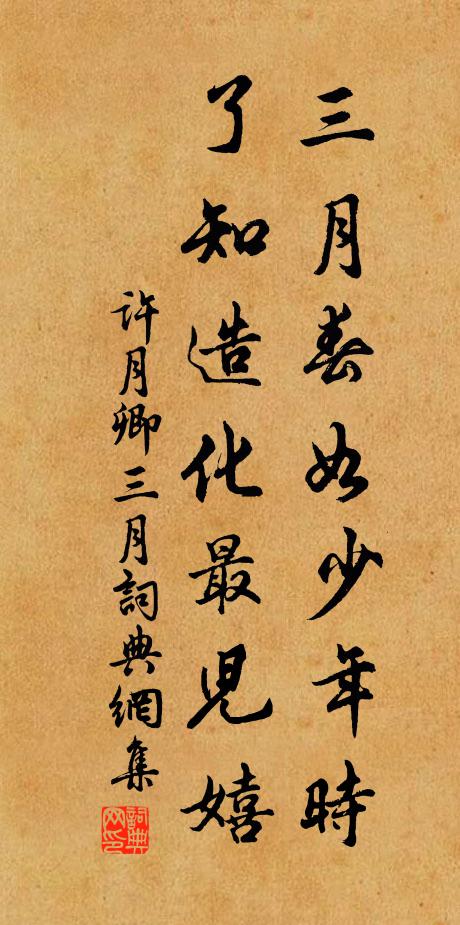 三月春如少年時
了知造化最兒嬉
許月卿三月詞典網集
詞典網印